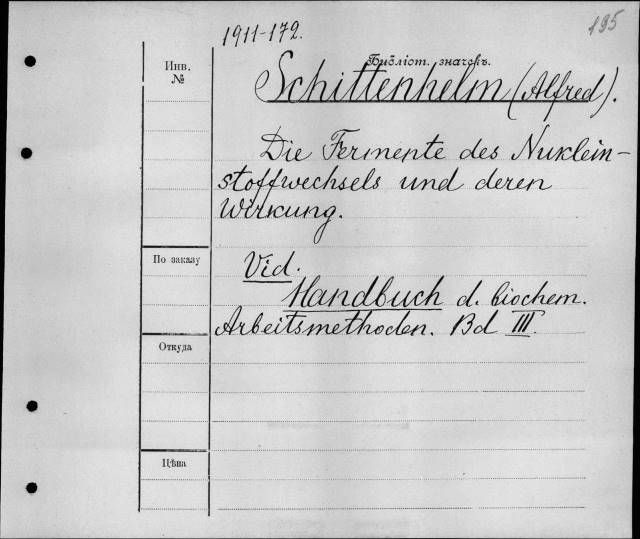 195
1911-172.
Инв.
№
Библіот. значокъ.
Schittenhelm (Alfred).
Die Fermente des Nuklein-
stoffwechsels und deren
Wirkung.
По заказу
Vid.
Handbuch d. biochem.
Arbeitsmethoden. Bd III.
Откуда
Цѣна